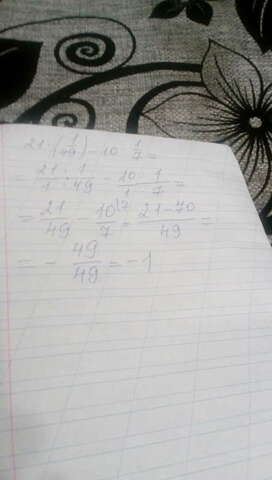 21·(1/49) - 10 · 1/7 =
= 21/1 · 1/49 - 10/1 · 1/7 =
= 21/49 - 10/7 \7 = 21-70/49 =
= - 49/49 = -1